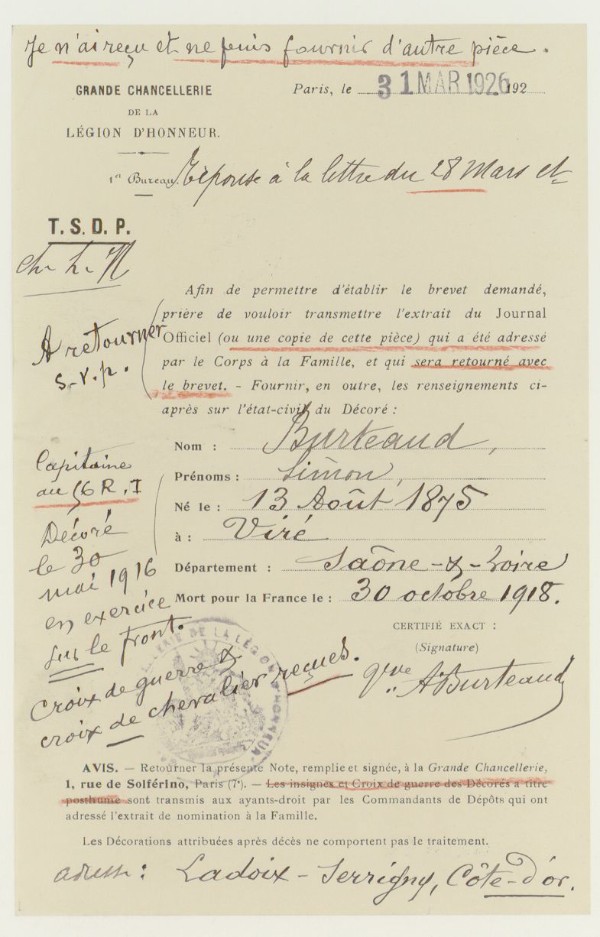 Je n'ai reçu et ne puis fournir d'autre pièce.
GRANDE CHANCELLERIE
DE LA
LÉGION D'HONNEUR.
Paris, le 31 MAR 1926 192
1er Bureau. Réponse à la lettre du 28 Mars ct
T. S. D. P.
ch. L. N
Afin de permettre d'établir le brevet demandé,
prière de vouloir transmettre l'extrait du Journal
Officiel (ou une copie de cette pièce) qui a été adressé
par le Corps à la Famille, et qui sera retourné avec
le brevet. - Fournir, en outre, les renseignements ci-
après sur l'état-civil du Décoré :
A retourner
s.v.p.
Nom : Burteaud,
Prénoms : Simon,
Né le : 13 Août 1875
à : Viré
Département : Saône-&-Loire
Mort pour la France le : 30 octobre 1918.
Capitaine
au 56 R. I
Décoré
le 30
mai 1916
en exercice
sur le front.
Croix de guerre &
croix de chevalier reçues.
CERTIFIÉ EXACT :
(Signature)
Vve A Burteaud
DE LA LÉGION D'HONNEUR
AVIS. — Retourner la présente Note, remplie et signée, à la Grande Chancellerie,
1, rue de Solférino, Paris (7e). — Les insignes et Croix de guerre des Décorés à titre
posthume sont transmis aux ayants-droit par les Commandants de Dépôts qui ont
adressé l'extrait de nomination à la Famille.
Les Décorations attribuées après décès ne comportent pas le traitement.
adresse : Ladoix-Serrigny, Côte-d'or.